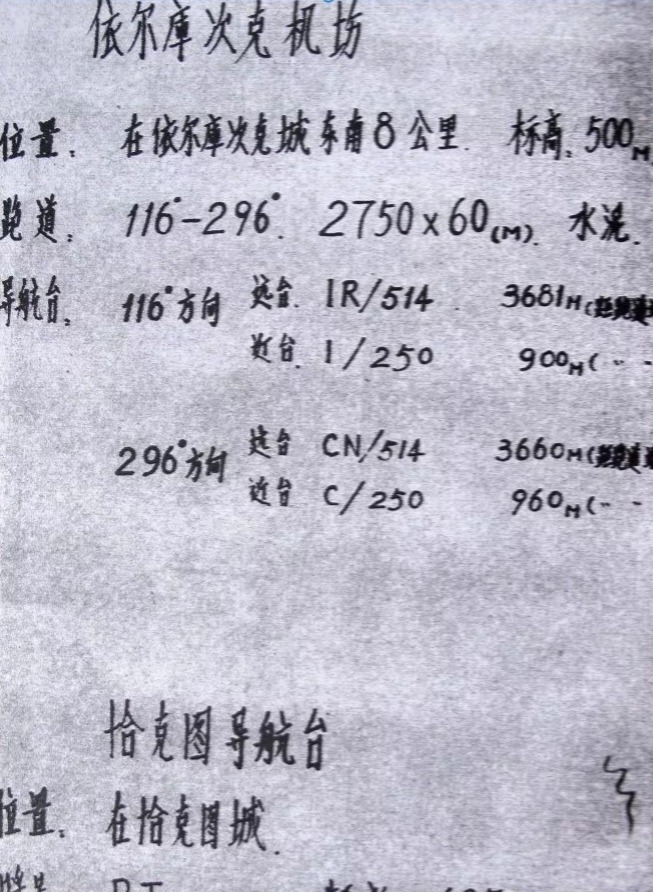 依尔库次克机场
位置: 在依尔库次克城东南8公里. 标高: 500M
跑道: 116°-296°. 2750x60(M). 水泥.
导航台: 116°方向 远台. IR/514. 3681M(
近台. I/250 900M(
296°方向 远台 CN/514 3660M(
近台 C/250 960M(
恰克图导航台
位置. 在恰克图城.